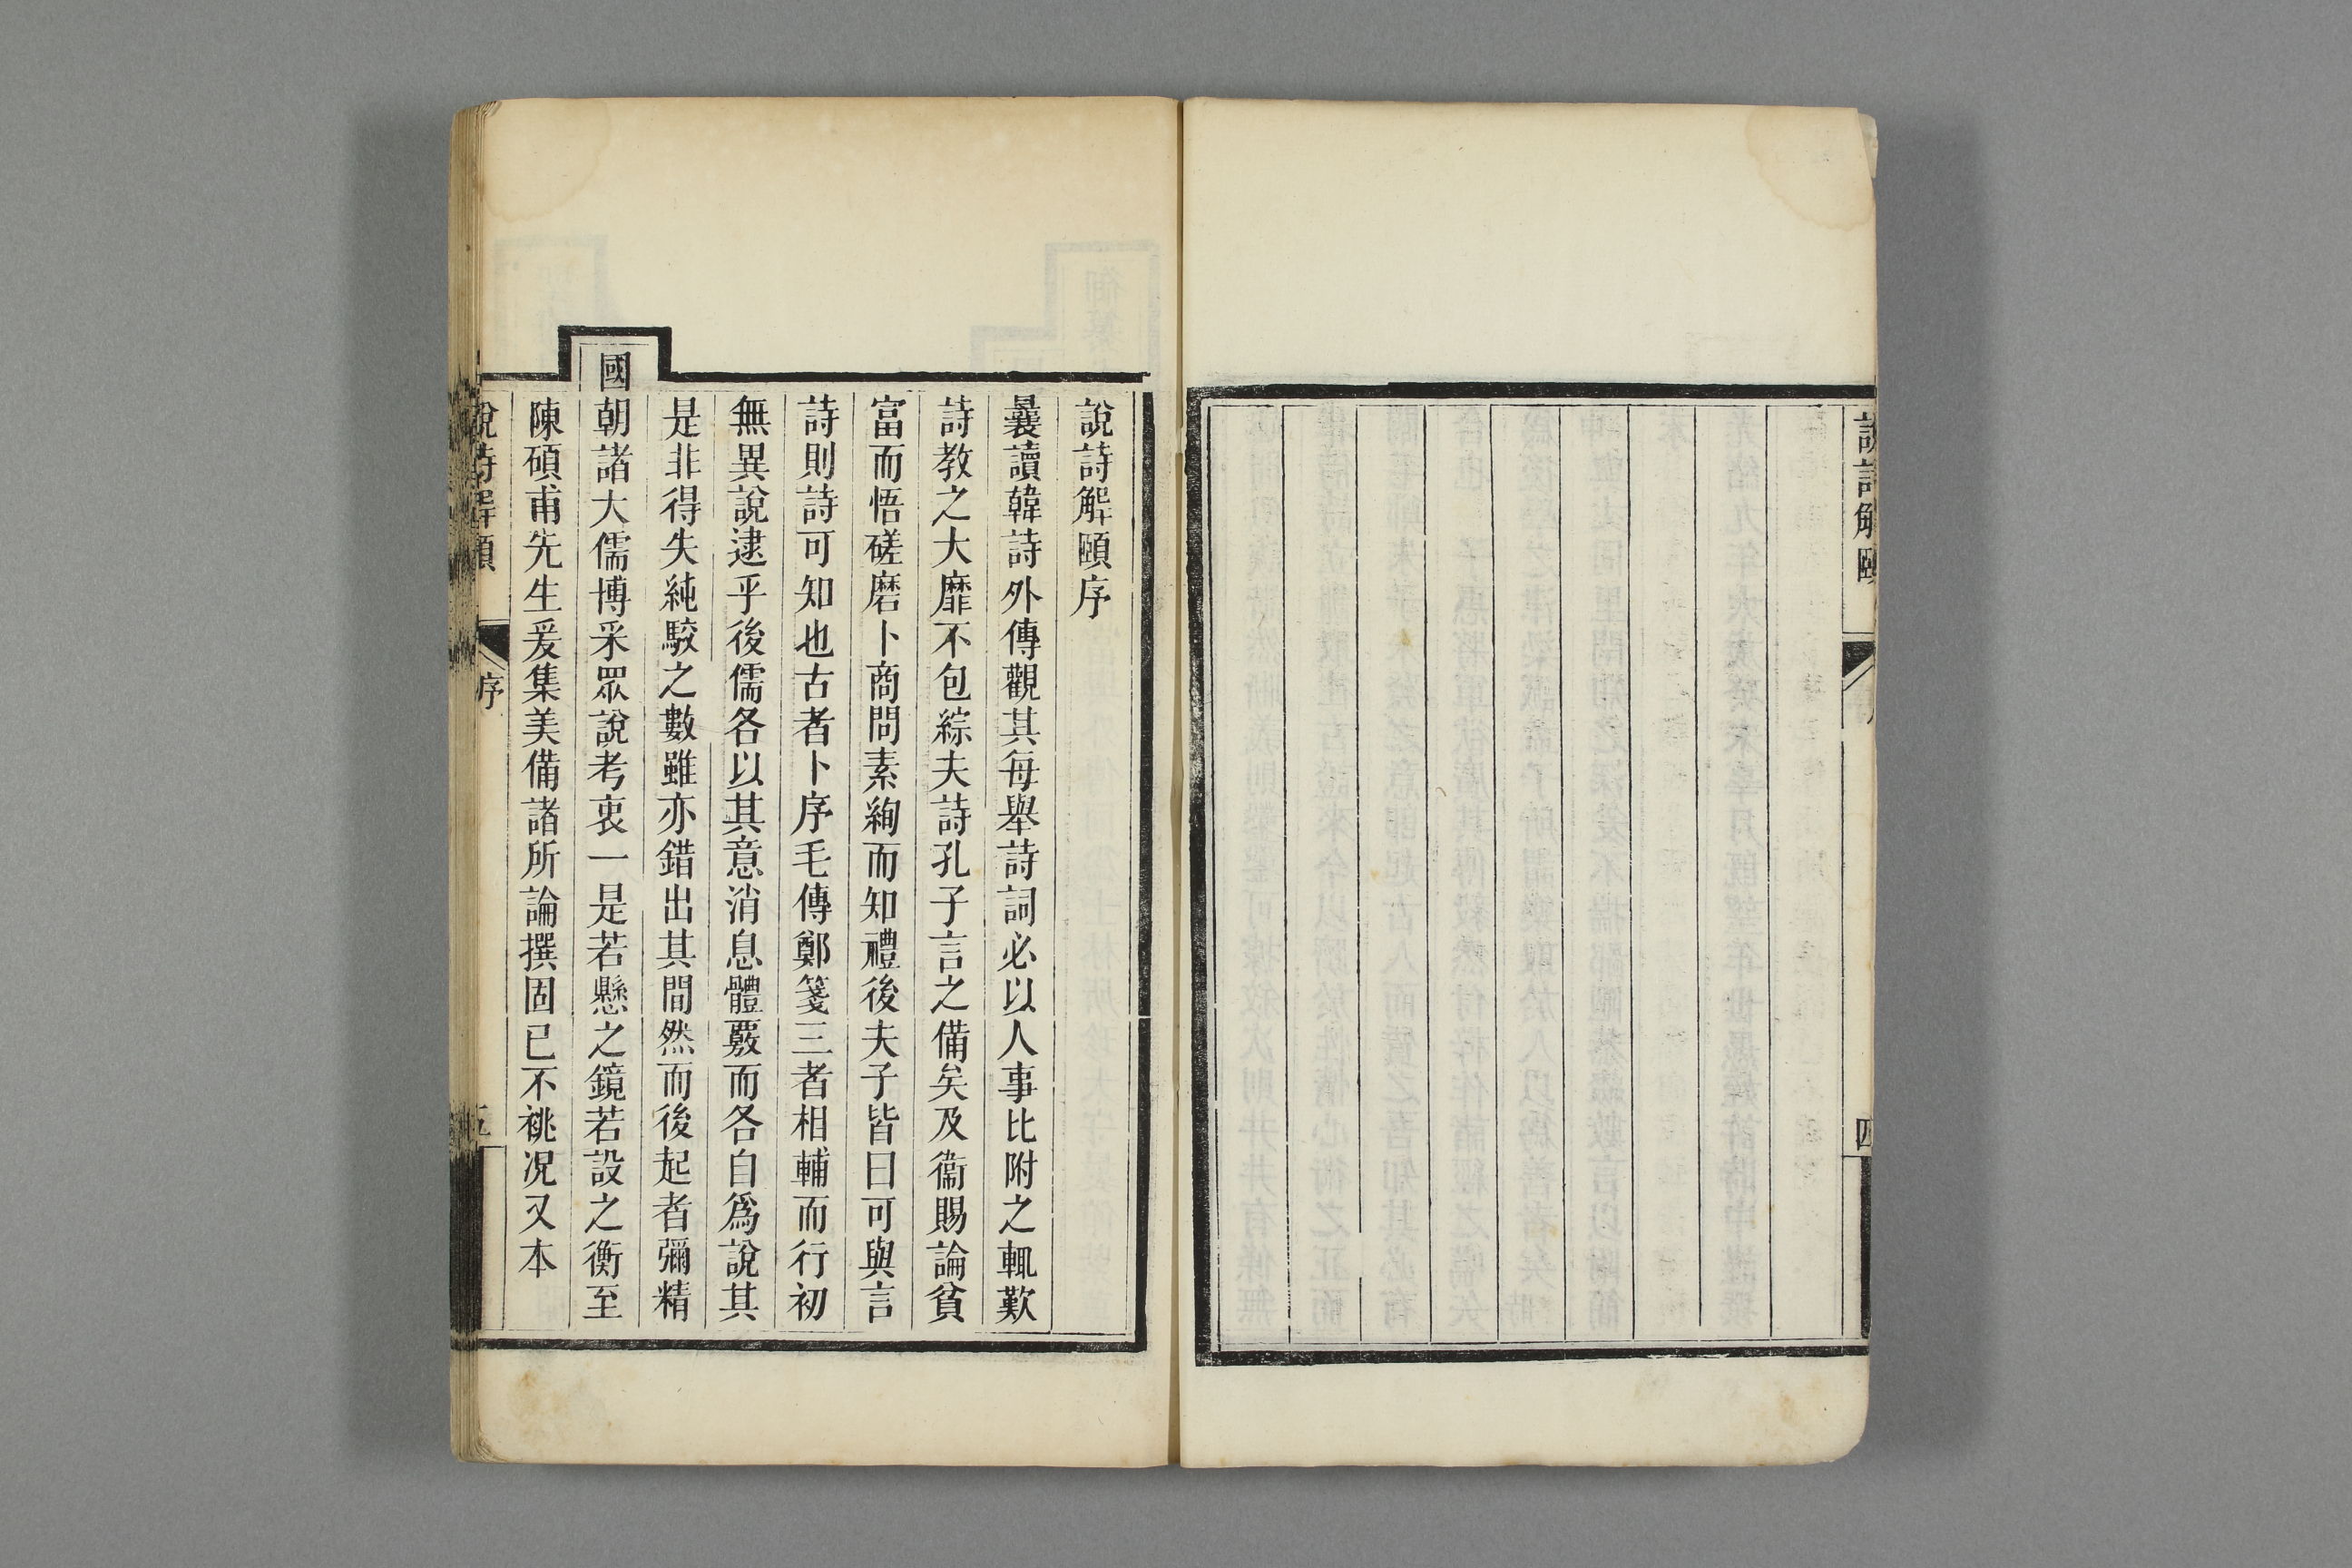 說詩解頤
四
說詩解頤序
曩讀韓詩外傳觀其每舉詩詞必以人事比附之輒歎
詩教之大靡不包綜夫詩孔子言之備矣及衞賜論貧
富而悟磋磨卜商問素絢而知禮後夫子皆曰可與言
詩則詩可知也古者卜序毛傳鄭箋三者相輔而行初
無異說逮乎後儒各以其意消息體覈而各自爲說其
是非得失純駮之數雖亦錯出其間然而後起者彌精
國朝諸大儒博采眾說考衷一是若懸之鏡若設之衡至
陳碩甫先生爰集美備諸所論撰固已不祧况又本
說詩解頤
序
五